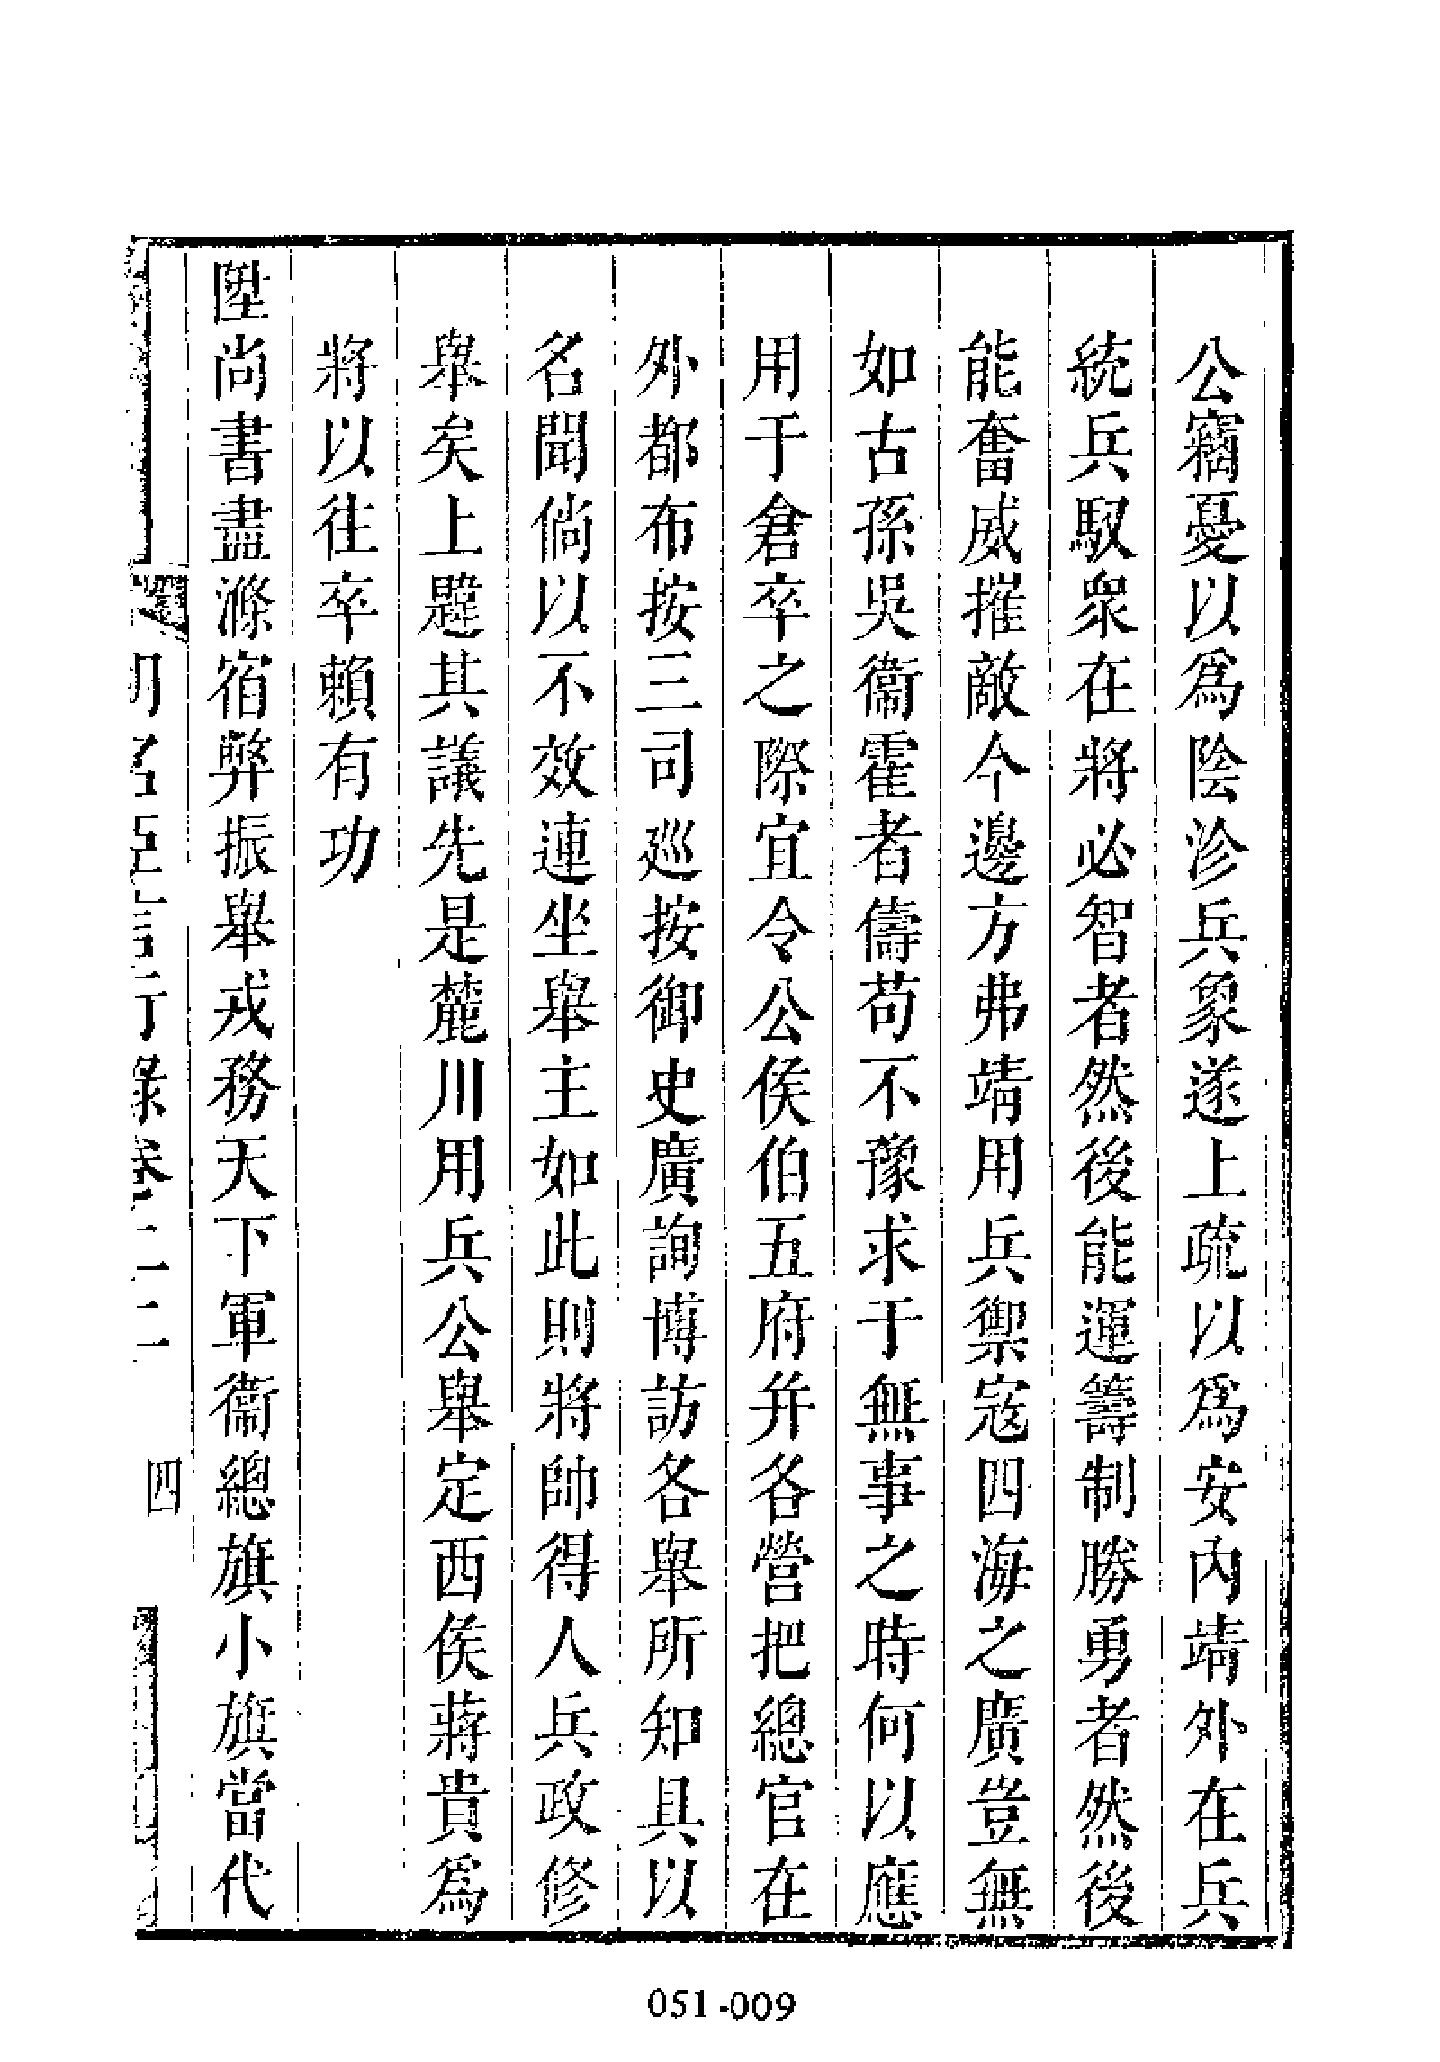 公竊憂以爲陰沴兵象遂上疏以爲安內靖外在兵
統兵馭眾在將必智者然後能運籌制勝勇者然後
能奮威摧敵今邊方弗靖用兵禦寇四海之廣豈無
如古孫吳衞霍者儔苟不豫求于無事之時何以應
用于倉卒之際宜令公侯伯五府并各營把總官在
外都布按三司廵按御史廣詢博訪各舉所知具以
名聞倘以不效連坐舉主如此則將帥得人兵政修
舉矣上韙其議先是麓川用兵公舉定西侯蔣貴爲
將以往卒賴有功
陞尚書盡滌宿弊振舉戎務天下軍衞總旗小旗當代
明名臣言行錄卷二二 四
051-009